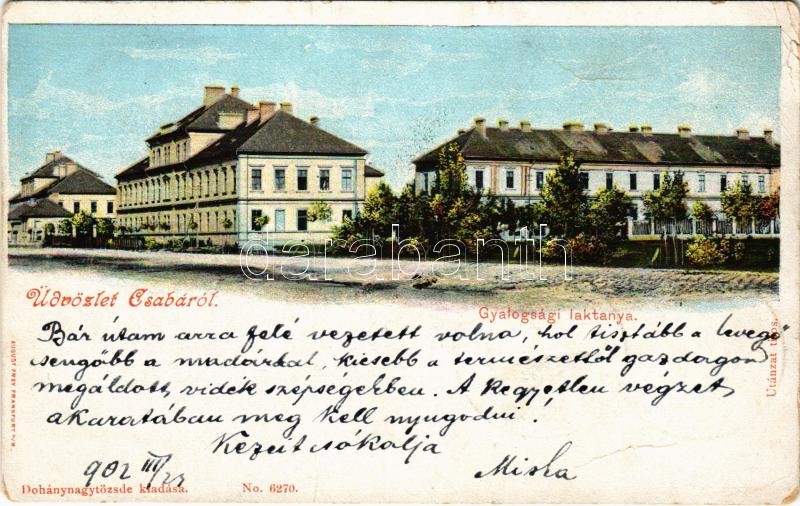 darabanth
Üdvözlet Csabáról.
Gyalogsági laktanya.
Bár útam arra felé vezetett volna, hol tisztább a levegő
sengőbb a madárdal, kiesebb a természettől gazdagon
megáldott, vidék szépségekben. A kegyetlen végzet
akaratában meg kell nyugodni!
Kezeit csókolja
902 III/23
Miska
Dohánynagytőzsde kiadása.
No. 6270.
Utánzat tilos.
AUGUST FREY FRANKFURT a/M.